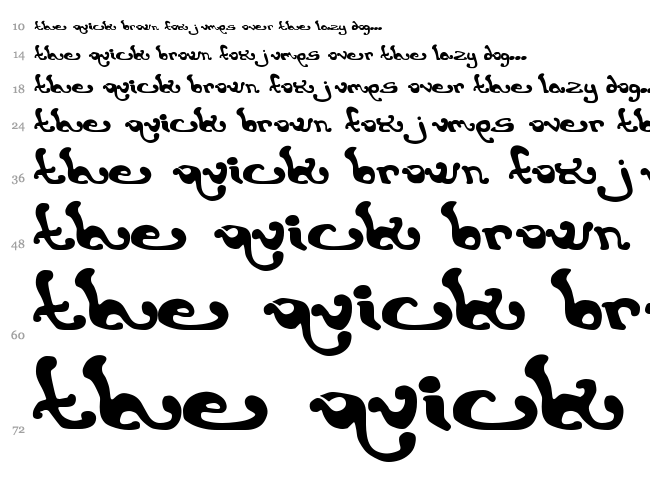 10 the quick brown fox jumps over the lazy dog...
14 the quick brown fox jumps over the lazy dog...
18 the quick brown fox jumps over the lazy dog..
24 the quick brown fox jumps over th
36 the quick brown fox j
48 the quick brown
60 the quick br
72 the quick